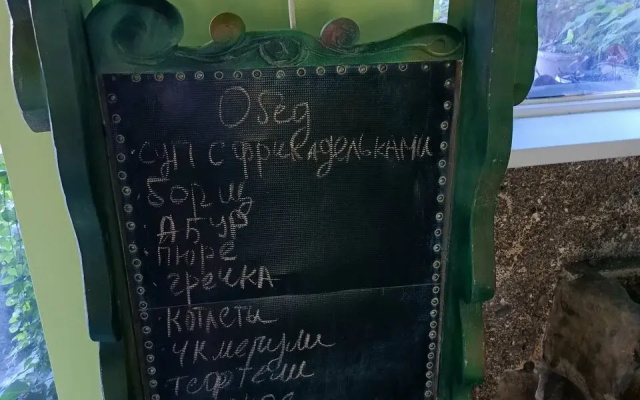 Обед
Суп с фрикадельками
Борщ
АБУР
Пюре
гречка
котлеты
чкмерули
тефтели